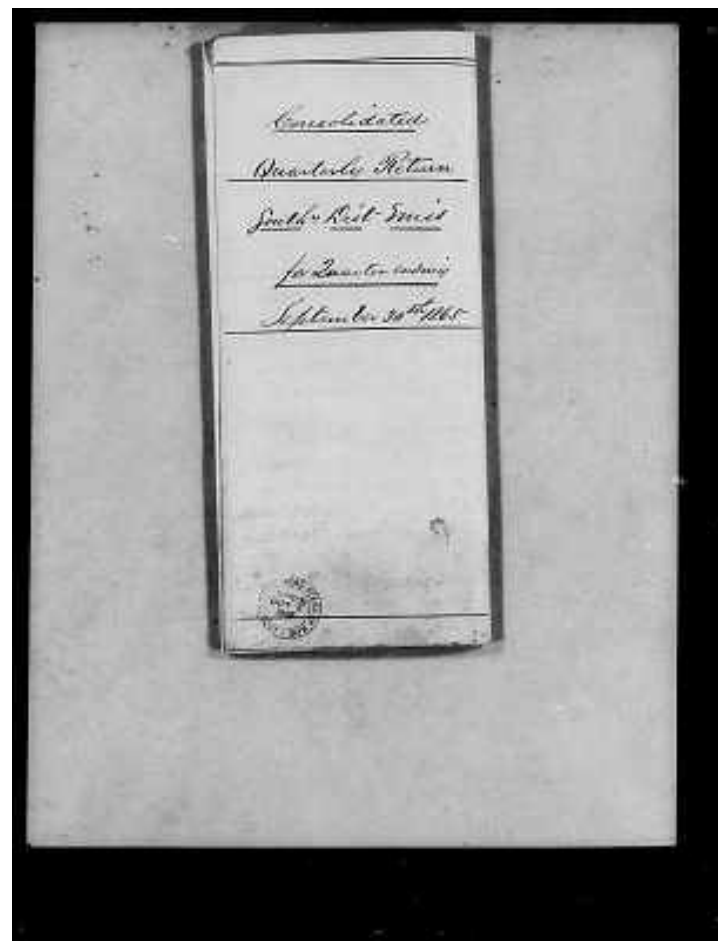 Consolidated
Quarterly Return
South<sup>n</sup> Dist Miss
for Quarter ending
September 30th 1865